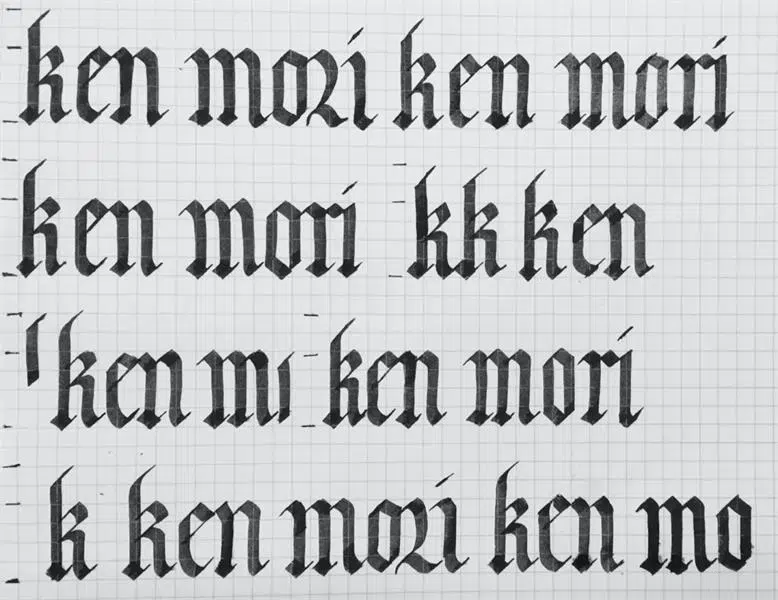 ken mori ken mori
ken mori kk ken
ken mı ken mori
k ken mori ken mo